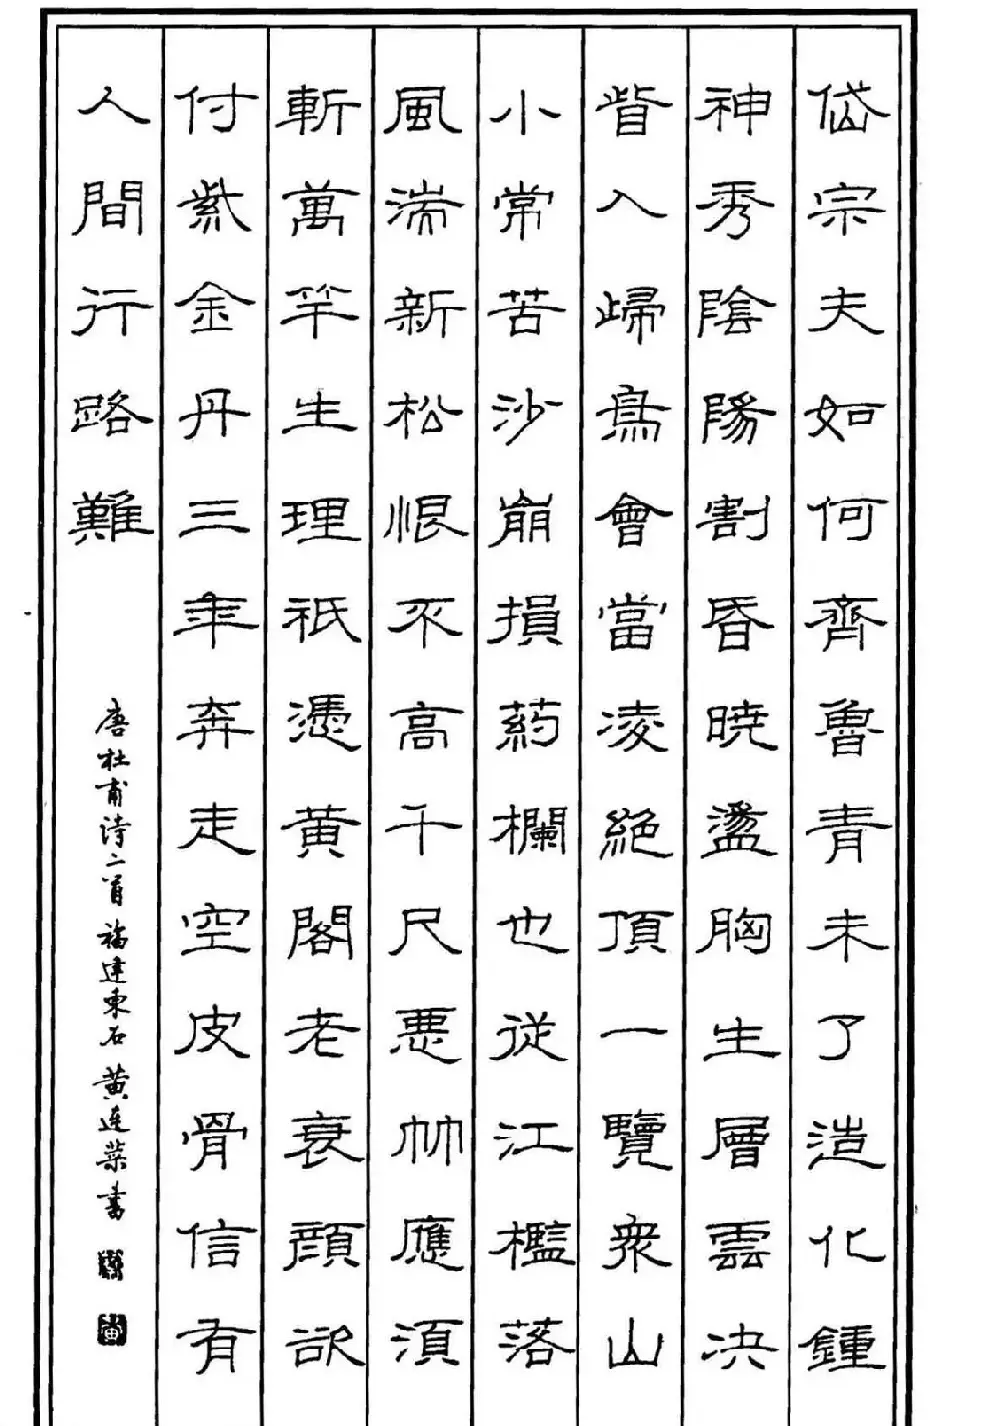 岱宗夫如何齊魯青未了造化鍾
神秀陰陽割昏曉盪胸生層雲决
眥入歸鳥會當凌絕頂一覽衆山
小常苦沙崩損葯欄也從江檻落
風湍新松恨不高千尺惡竹應須
斬萬竿生理祇憑黃閣老衰顏欲
付紫金丹三年奔走空皮骨信有
人間行路難
唐杜甫詩二首福建東石黃連葉書